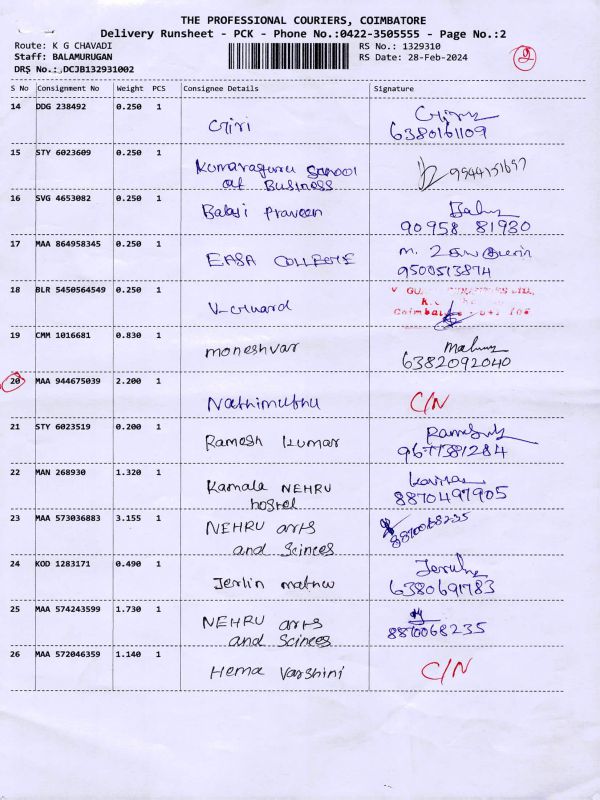 THE PROFESSIONAL COURIERS, COIMBATORE
Delivery Runsheet - PCK - Phone No.:0422-3505555 - Page No.:2
Route: K G CHAVADI RS No.: 1329310
Staff: BALAMURUGAN RS Date: 28-Feb-2024
DRS No.: DCJB132931002
2
S No Consignment No Weight PCS Consignee Details Signature
14 DDG 238492 0.250 1
Giri 6380161109
15 STY 6023609 0.250 1
Kumaraguru School
of Business
16 SVG 4653082 0.250 1
Balaji Praveen
90958 81930
17 MAA 864958345 0.250 1
EASA COLLEGE
9500513874
18 BLR 5450564549 0.250 1
V-Guard
19 CMM 1016681 0.830 1
moneshvar
6382092040
20 MAA 944675039 2.200 1
Nathimuthu C/N
21 STY 6023519 0.200 1
Ramesh kumar
9677381284
22 MAN 268930 1.320 1
Kamala NEHRU
hostel
8870497905
23 MAA 573036883 3.155 1
NEHRU arts 8870068235
and Scinces
24 KOD 1283171 0.490 1
Jerlin mathew 6380691783
25 MAA 574243599 1.730 1
NEHRU arts
and Scinces 8870068235
26 MAA 572046359 1.140 1
Hema Varshini C/N